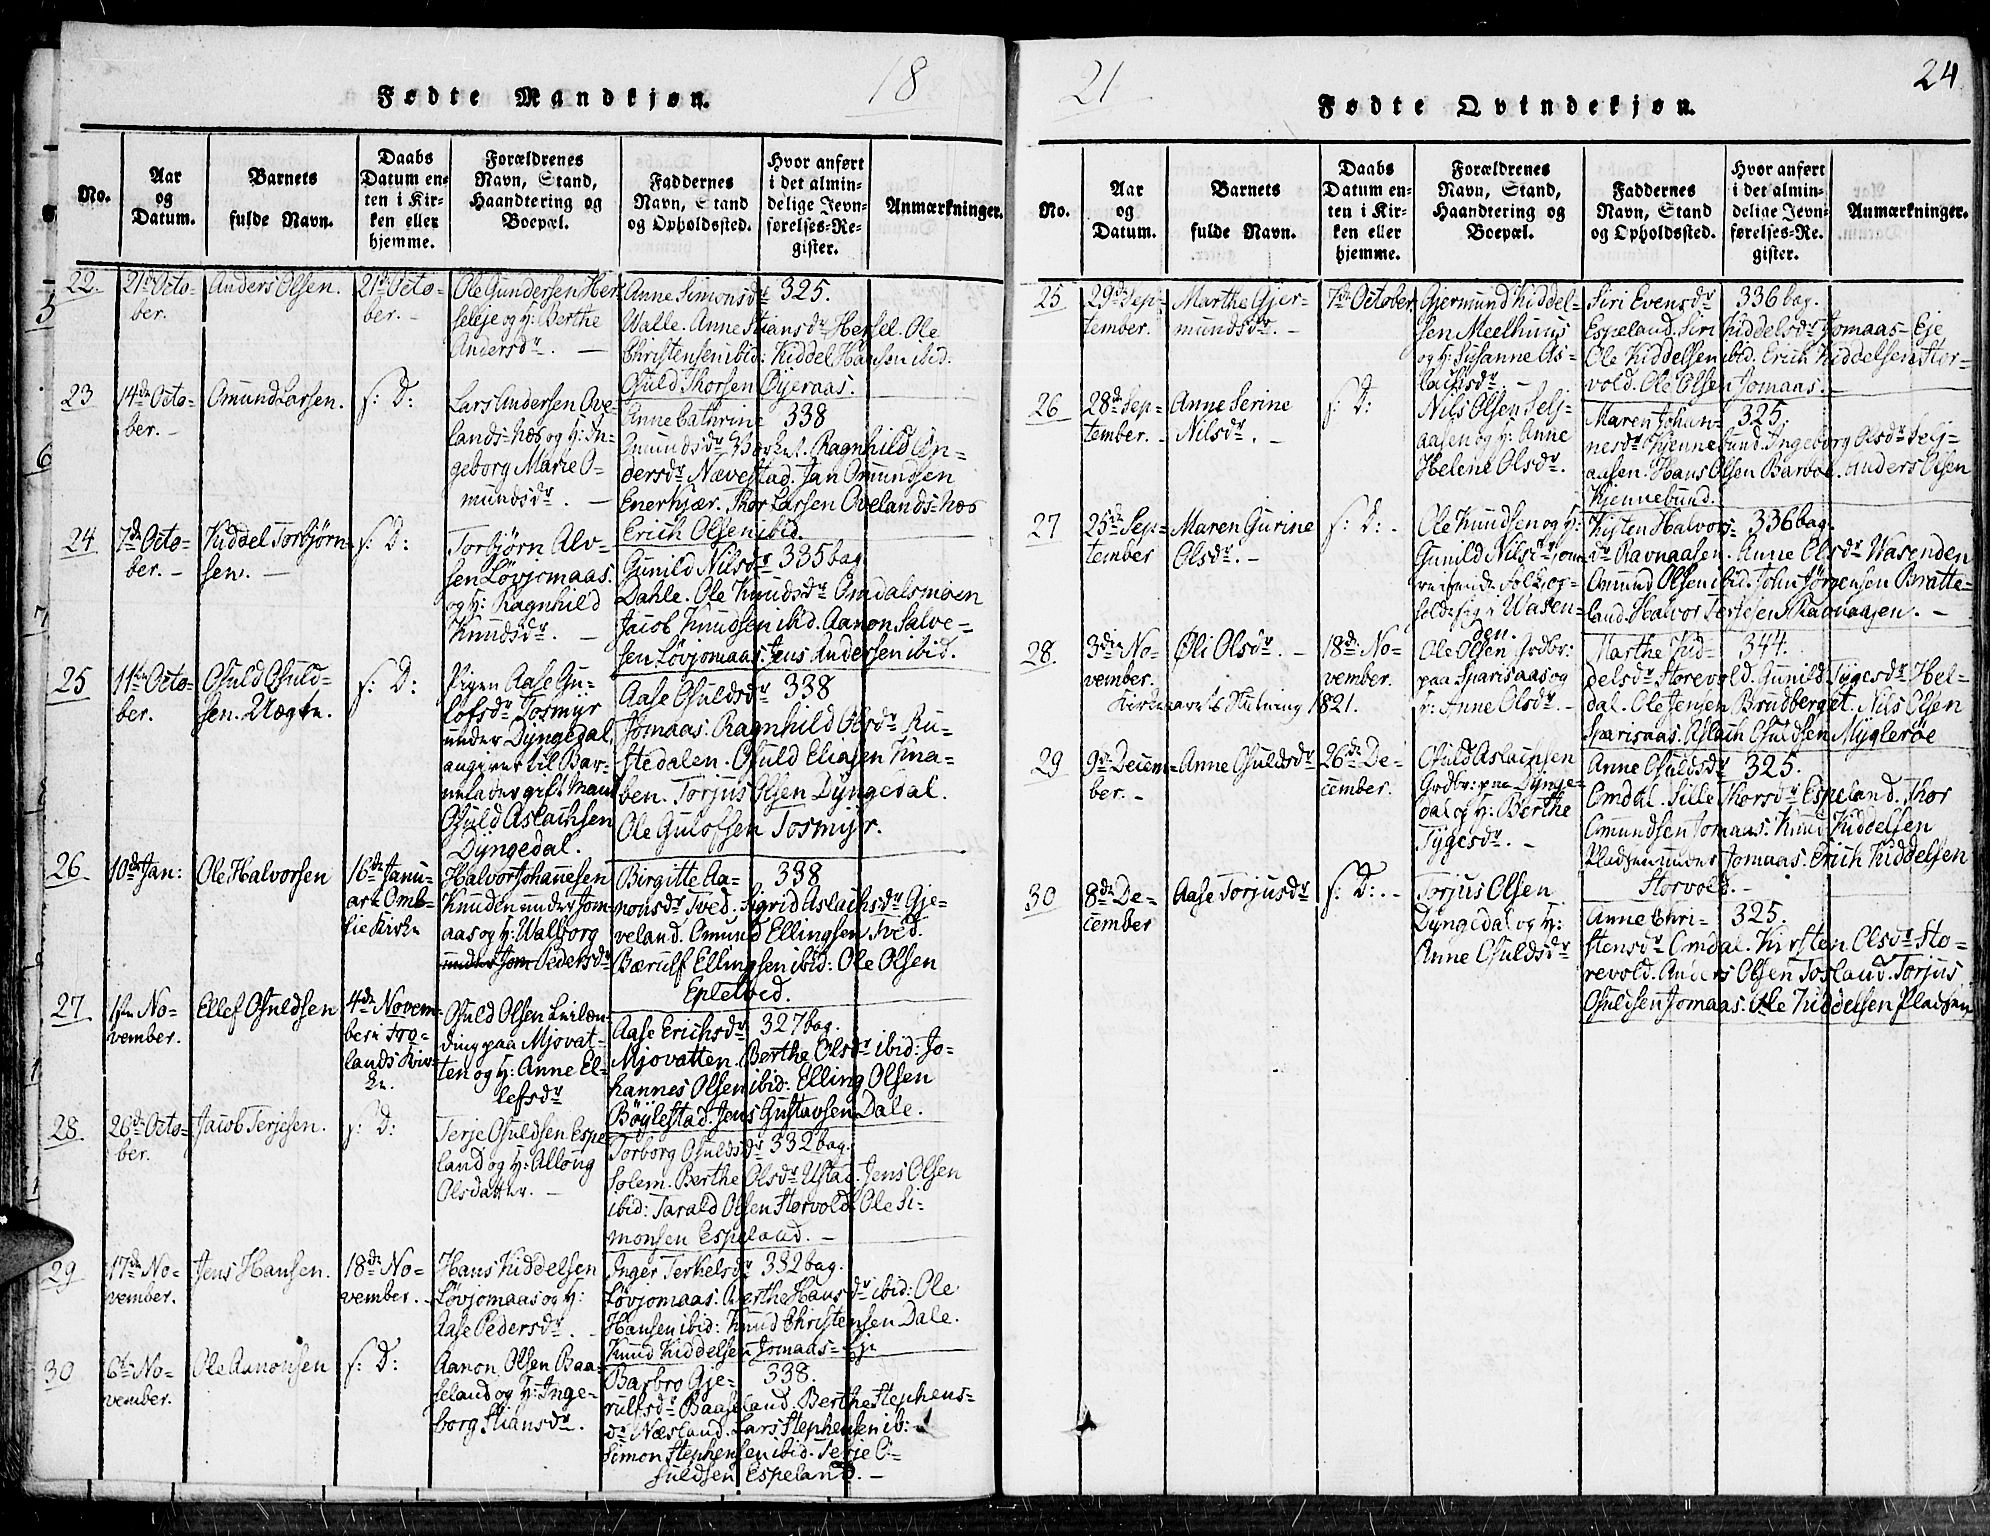 18
Fødte Mandkjøn.
No.
Aar
og
Datum.
Barnets
fulde Navn.
Daabs
Datum en-
ten i Kir-
ken eller
hjemme.
Forældrenes
Navn, Stand,
Haandtering og
Boepæl.
Faddernes
Navn, Stand
og Opholdssted.
Hvor anført
i det almin-
delige Jevn-
førelses-Re-
gister.
Anmærkninger.
22.
21de Octo-
ber.
Anders Olsen.
21de Octo-
ber.
Ole Gundersen Her-
selje og H: Berthe
Andersdr.
Anne Simonsdr 325.
Walle. Anne Stiansdr Hersel. Ole
Christensen ibid: Kiddel Hansen ibid:
Osuld Thorsen Øyeraas.
23
14de Octo-
ber.
Omund Larsen.
s: D:
Lars Andersen Ove-
lands-næs og H: In-
geborg Marie O-
mundsdr.
Anne Cathrine 338
Omundsdr Ragnhild An-
dersdr Nævestad. Jan Omundsen
Enerkjær. Thor Larsen Ovelands-næs
Erich Olsen ibid.
24
7de Octo-
ber.
Kiddel Torbjørn-
sen.
s: D:
Torbjørn Alv-
sen Løvjomaas.
og H: Ragnhild
Knudsdr.
Gunild Nilsdr 335 bag
Dahle. Ole Knudsdr Omdalsmoen
Jacob Knudsen ibid. Aanon Salve-
sen Løvjomaas. Jens Andersen ibid.
25
11te Octo-
ber.
Osuld Osuld-
sen. Uægte.
s: D:
Pigen Aase Gu-
lofsdr Tosmyr
under Dyngedal,
angiver til Bar-
nefader gift Mand
Osuld Aslachsen
Dyngedal.
Aase Osuldsdr 338
Jomaas. Ragnhild Olsdr Ru-
stedalen. Osuld Eliasen Kna-
ben. Torjus Olsen Dyngedal.
Ole Gulofsen Tosmyr.
26
10de Jan:
Ole Halvorsen
16de Janu-
ar i Omb-
lie Kirke
Halvor Johannesen
Knuden under Jom-
aas og H: Walborg
under Jom Pedersdr
Birgitte Aa- 338
nonsdr Tved. Sigrid Aslachsdr Gje-
veland. Omund Ellingsen Tved.
Bærulf Ellingsen ibid: Ole Olsen
Epletved.
27
1ste No-
vember.
Ellef Osuldsen
4de Novem-
ber i Fro-
lands Kir-
ke.
Osuld Olsen Leilæn-
ding paa Mjovat-
ten og H: Anne El-
lefsdr
Aase Erichsdr 327 bag.
Mjovatten. Berthe Olsdr ibid: Jo-
hannes Olsen ibid: Elling Olsen
Bøylestad. Jens Gustavsen Dale.
28
26de Octo-
ber.
Jacob Terjesen.
s: D:
Terje Osuldsen Espe-
land og H: Allong
Olsdatter.
Torborg Osuldsdr 332 bag.
Solem. Berthe Olsdr Ustad. Jens Olsen
ibid: Tarald Olsen Storvold. Ole Si-
monsen Espeland.
29
17de No-
vember.
Jens Hansen.
18de No-
vember.
Hans Kiddelsen
Løvjomaas og H:
Aase Pedersdr.
Inger Terkelsdr 332 bag.
Løvjomaas: Berthe Hansdr ibid: Ole
Hansen ibid: Knud Christensen Dale.
Knud Kiddelsen Jomaas-Eje
30
6te No-
vember.
Ole Aanonsen
s: D:
Aanon Olsen Baa-
seland og H: Inge-
borg Stiansdr.
Barbro Gje- 338.
rulfsdr Baaseland. Berthe Stephens-
dr Næsland. Lars Stephensen ib:
Simon Stephensen ibid. Terje O-
suldsen Espeland.
21
24
Fødte Qvindekjøn.
No.
Aar
og
Datum.
Barnets
fulde Navn.
Daabs
Datum en-
ten i Kir-
ken eller
hjemme.
Forældrenes
Navn, Stand,
Haandtering og
Boepæl.
Faddernes
Navn, Stand
og Opholdssted.
Hvor anført
i det almin-
delige Jevn-
førelses-Re-
gister.
Anmærkninger.
25
29de Sep-
tember.
Marthe Gjer-
mundsdr.
7de October.
Gjermund Kiddel-
sen Meelhuus
og H: Susanne As-
lachsdr.
Siri Evensdr 336 bag.
Espeland. Siri Kiddelsdr Jomaas-Eje
Ole Kiddelsen ibid. Erich Kiddelsen Stor-
vold. Ole Olsen Jomaas.
26
28de Sep-
tember.
Anne Serine
Nilsdr.
s: D:
Nils Olsen Selj-
aasen og H: Anne
Helene Olsdr.
Maren Johan- 325.
nesdr Kjennesund. Ingeborg Olsdr Selj-
aasen. Hans Olsen Barvoe. Anders Olsen
Kjennesund.
27
25de Sep-
tember
Maren Gurine
Olsdr.
s: D:
Ole Knudsen og H:
Gunild Nilsdr, om-
reisende Folk, op-
holde sig i Wasen-
den.
Kisten Halvors- 336 bag.
dr Ravnaasen. Anne Olsdr Wasenden
Omund Olsen ibid. John Jørgensen Bratte-
land. Halvor Terjesen Ravnaasen.
28
3die No-
vember.
Øli Olsdr.
18de No-
vember.
Ole Olsen Grdbr:
paa Sparisaas og
H: Anne Olsdr.
Marthe Kid- 344.
delsdr Storevold. Gunild Tygesdr Hel-
dal. Ole Jensen Brudberget. Nils Olsen
Sparisaas. Aslach Osuldsen Myglerøe
1821.
29
9de Decem-
ber.
Anne Osuldsdr
26de De-
cember.
Osuld Aslachsen
Grdbr: paa Dynge-
dal og H: Berthe
Tygesdr.
Anne Osuldsdr 325.
Omdal. Sille Thorsdr Espeland. Thor
Omundsen Jomaas. Knud Kiddelsen
Pladsen under Jomaas. Erich Kiddelsen
Storvold.
30
8de De-
cember
Aase Torjusdr
s: D:
Torjus Olsen
Dyngedal og H:
Anne Osuldsdr
Anne Chri- 325.
stensdr Omdal. Kirsten Olsdr Sto-
revold. Anders Olsen Tosland. Torjus
Osuldsen Jomaas. Ole Kiddelsen Pladsen